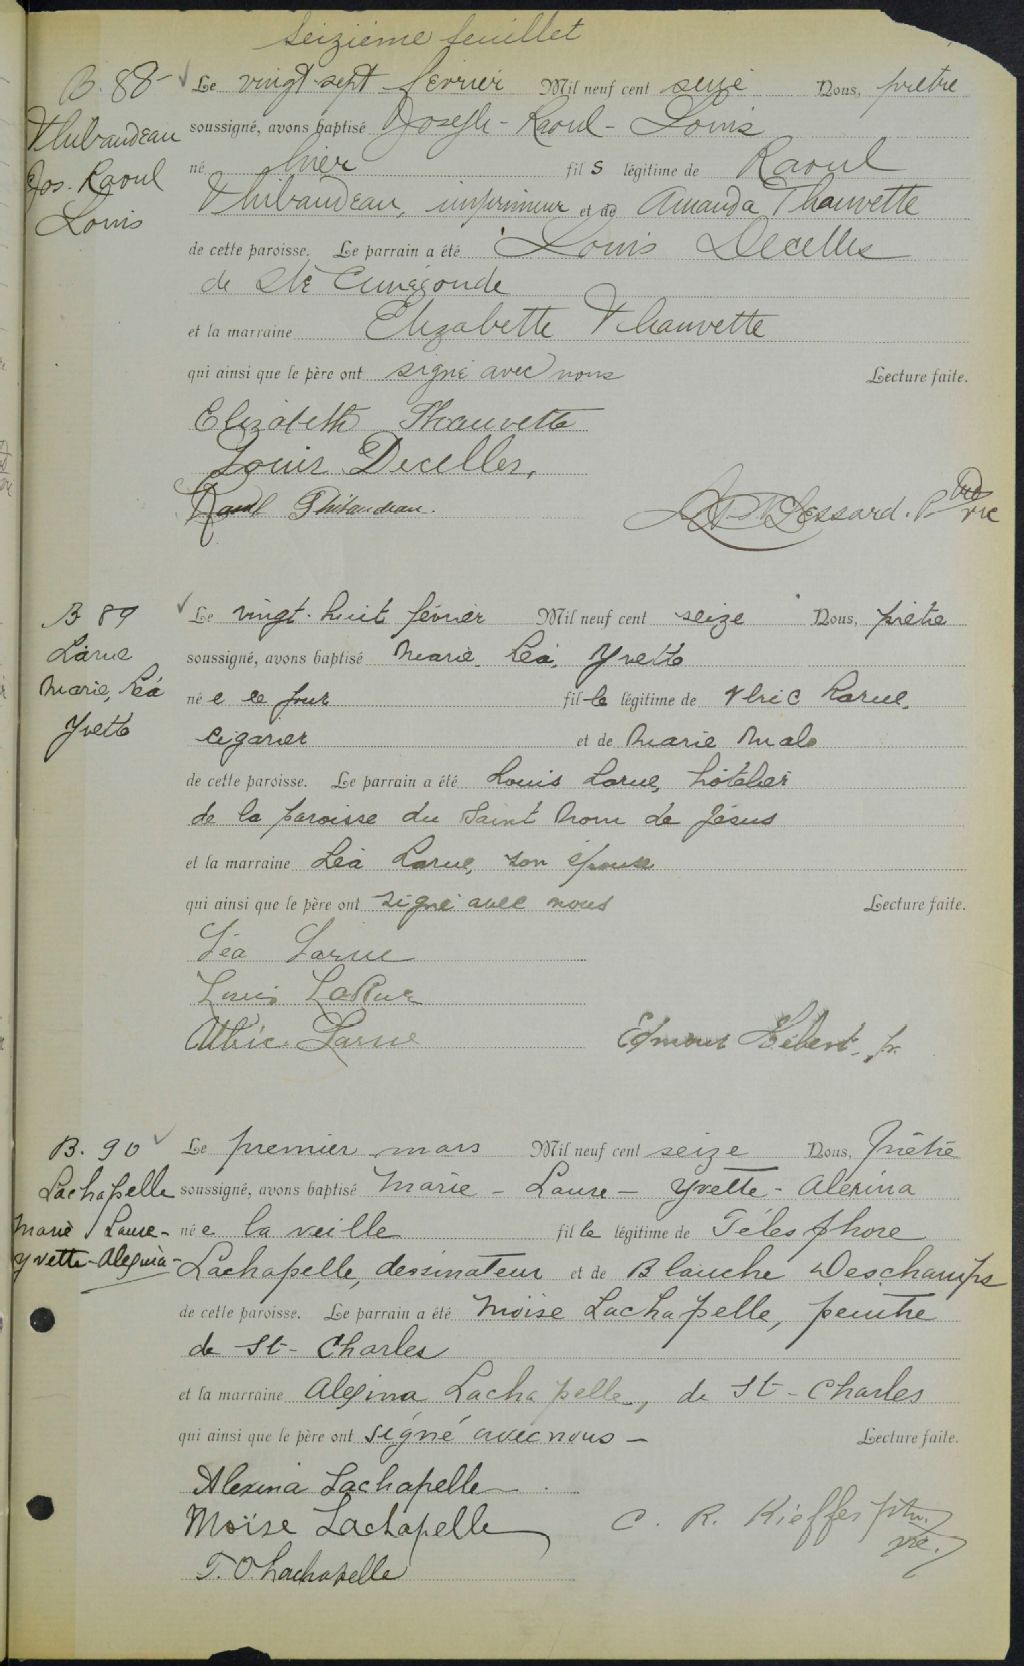 Seizième feuillet
B. 88 Le vingt-sept fevrier Mil neuf cent seize Nous, prêtre
Thibaudeau soussigné, avons baptisé Joseph - Raoul - Louis
Jos. Raoul né hier fils légitime de Raoul
Louis Thibaudeau, imprimeur et de Amanda Thauvette
de cette paroisse. Le parrain a été Louis Decelles
de Ste Cunégonde
et la marraine Elizabette Thauvette
qui ainsi que le père ont signé avec nous Lecture faite.
Elizabeth Thauvette
Louis Decelles,
Raoul Thibaudeau. Lessard. P
vic
B 89 Le vingt-huit février Mil neuf cent seize Nous, prêtre
Larue soussigné, avons baptisé Marie, Léa, Yvette
Marie, Léa née ce jour fille légitime de Ulric Larue,
Yvette cigarier et de Marie Malo
de cette paroisse. Le parrain a été Louis Larue, hôtelier
de la paroisse du Saint Nom de Jésus
et la marraine Léa Larue, son épouse
qui ainsi que le père ont signé avec nous Lecture faite.
Léa Larue
Louis LaRue
Larue Edmour Hébert, p.
B. 90 Le premier mars Mil neuf cent seize Nous, Prêtre
Lachapelle soussigné, avons baptisé Marie - Laure - Yvette - Alexina
Marie Laure - née la veille fille légitime de Télesphore
Yvette - Alexina - Lachapelle, dessinateur et de Blanche Deschamps
de cette paroisse. Le parrain a été Moïse Lachapelle, peintre
de St - Charles
et la marraine Alexina Lachapelle, de St - Charles
qui ainsi que le père ont signé avec nous - Lecture faite.
Alexina Lachapelle
Moïse Lachapelle C. R. Kieffer ptre.
vic.
T. O. Lachapelle